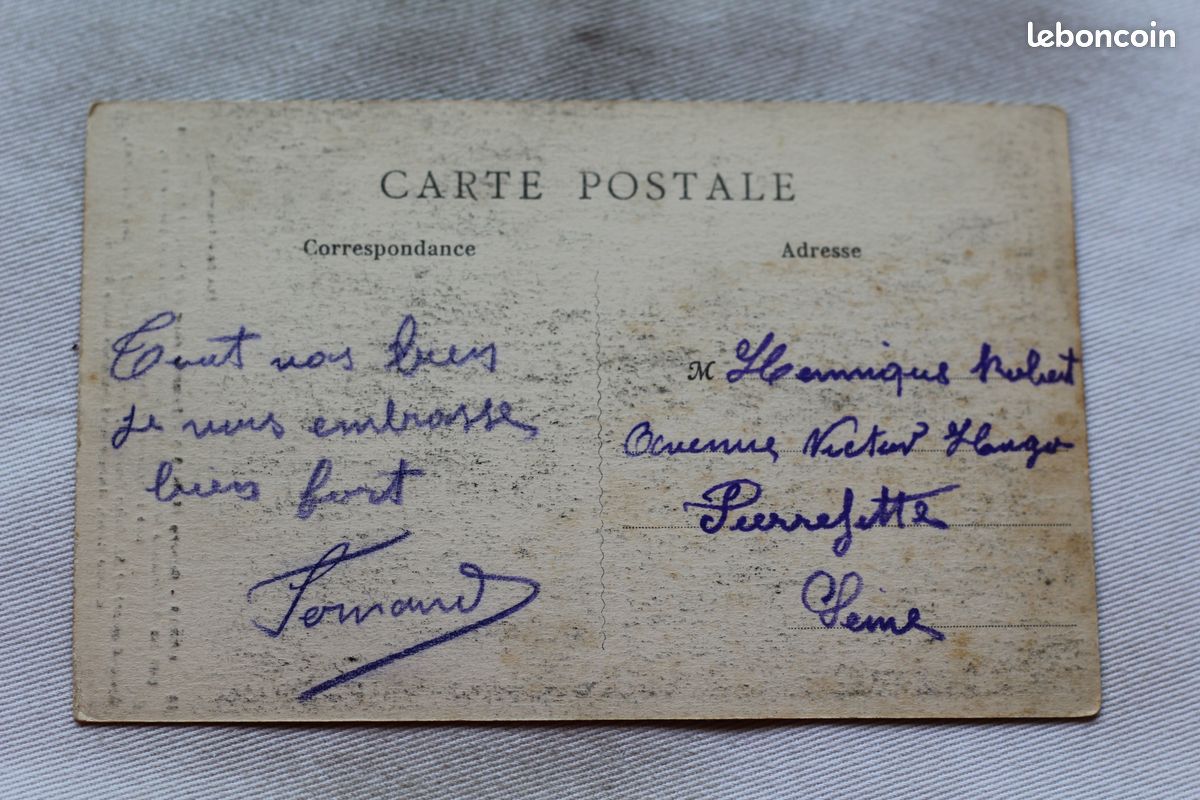 leboncoin
CARTE POSTALE
Correspondance
Adresse
Tout vas bien
je vous embrasse
bien fort
Fernand
M Hennique Robert
Avenue Victor Hugo
Pierrefitte
Seine